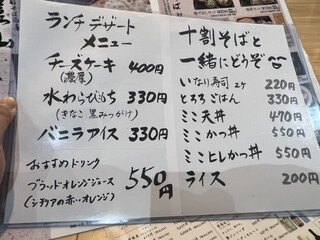 ランチデザート
メニュー
チーズケーキ 400円
(濃厚)
水わらびもち 330円
(きなこ 黒みつがけ)
バニラアイス 330円
おすすめドリンク
ブラッドオレンジジュース 550円
(シチリアの赤いオレンジ)
十割そばと
一緒にどうぞ
いなり寿司 2ケ 220円
とろろごはん 330円
ミニ天丼 470円
ミニかつ丼 550円
ミニヒレかつ丼 550円
ライス 200円